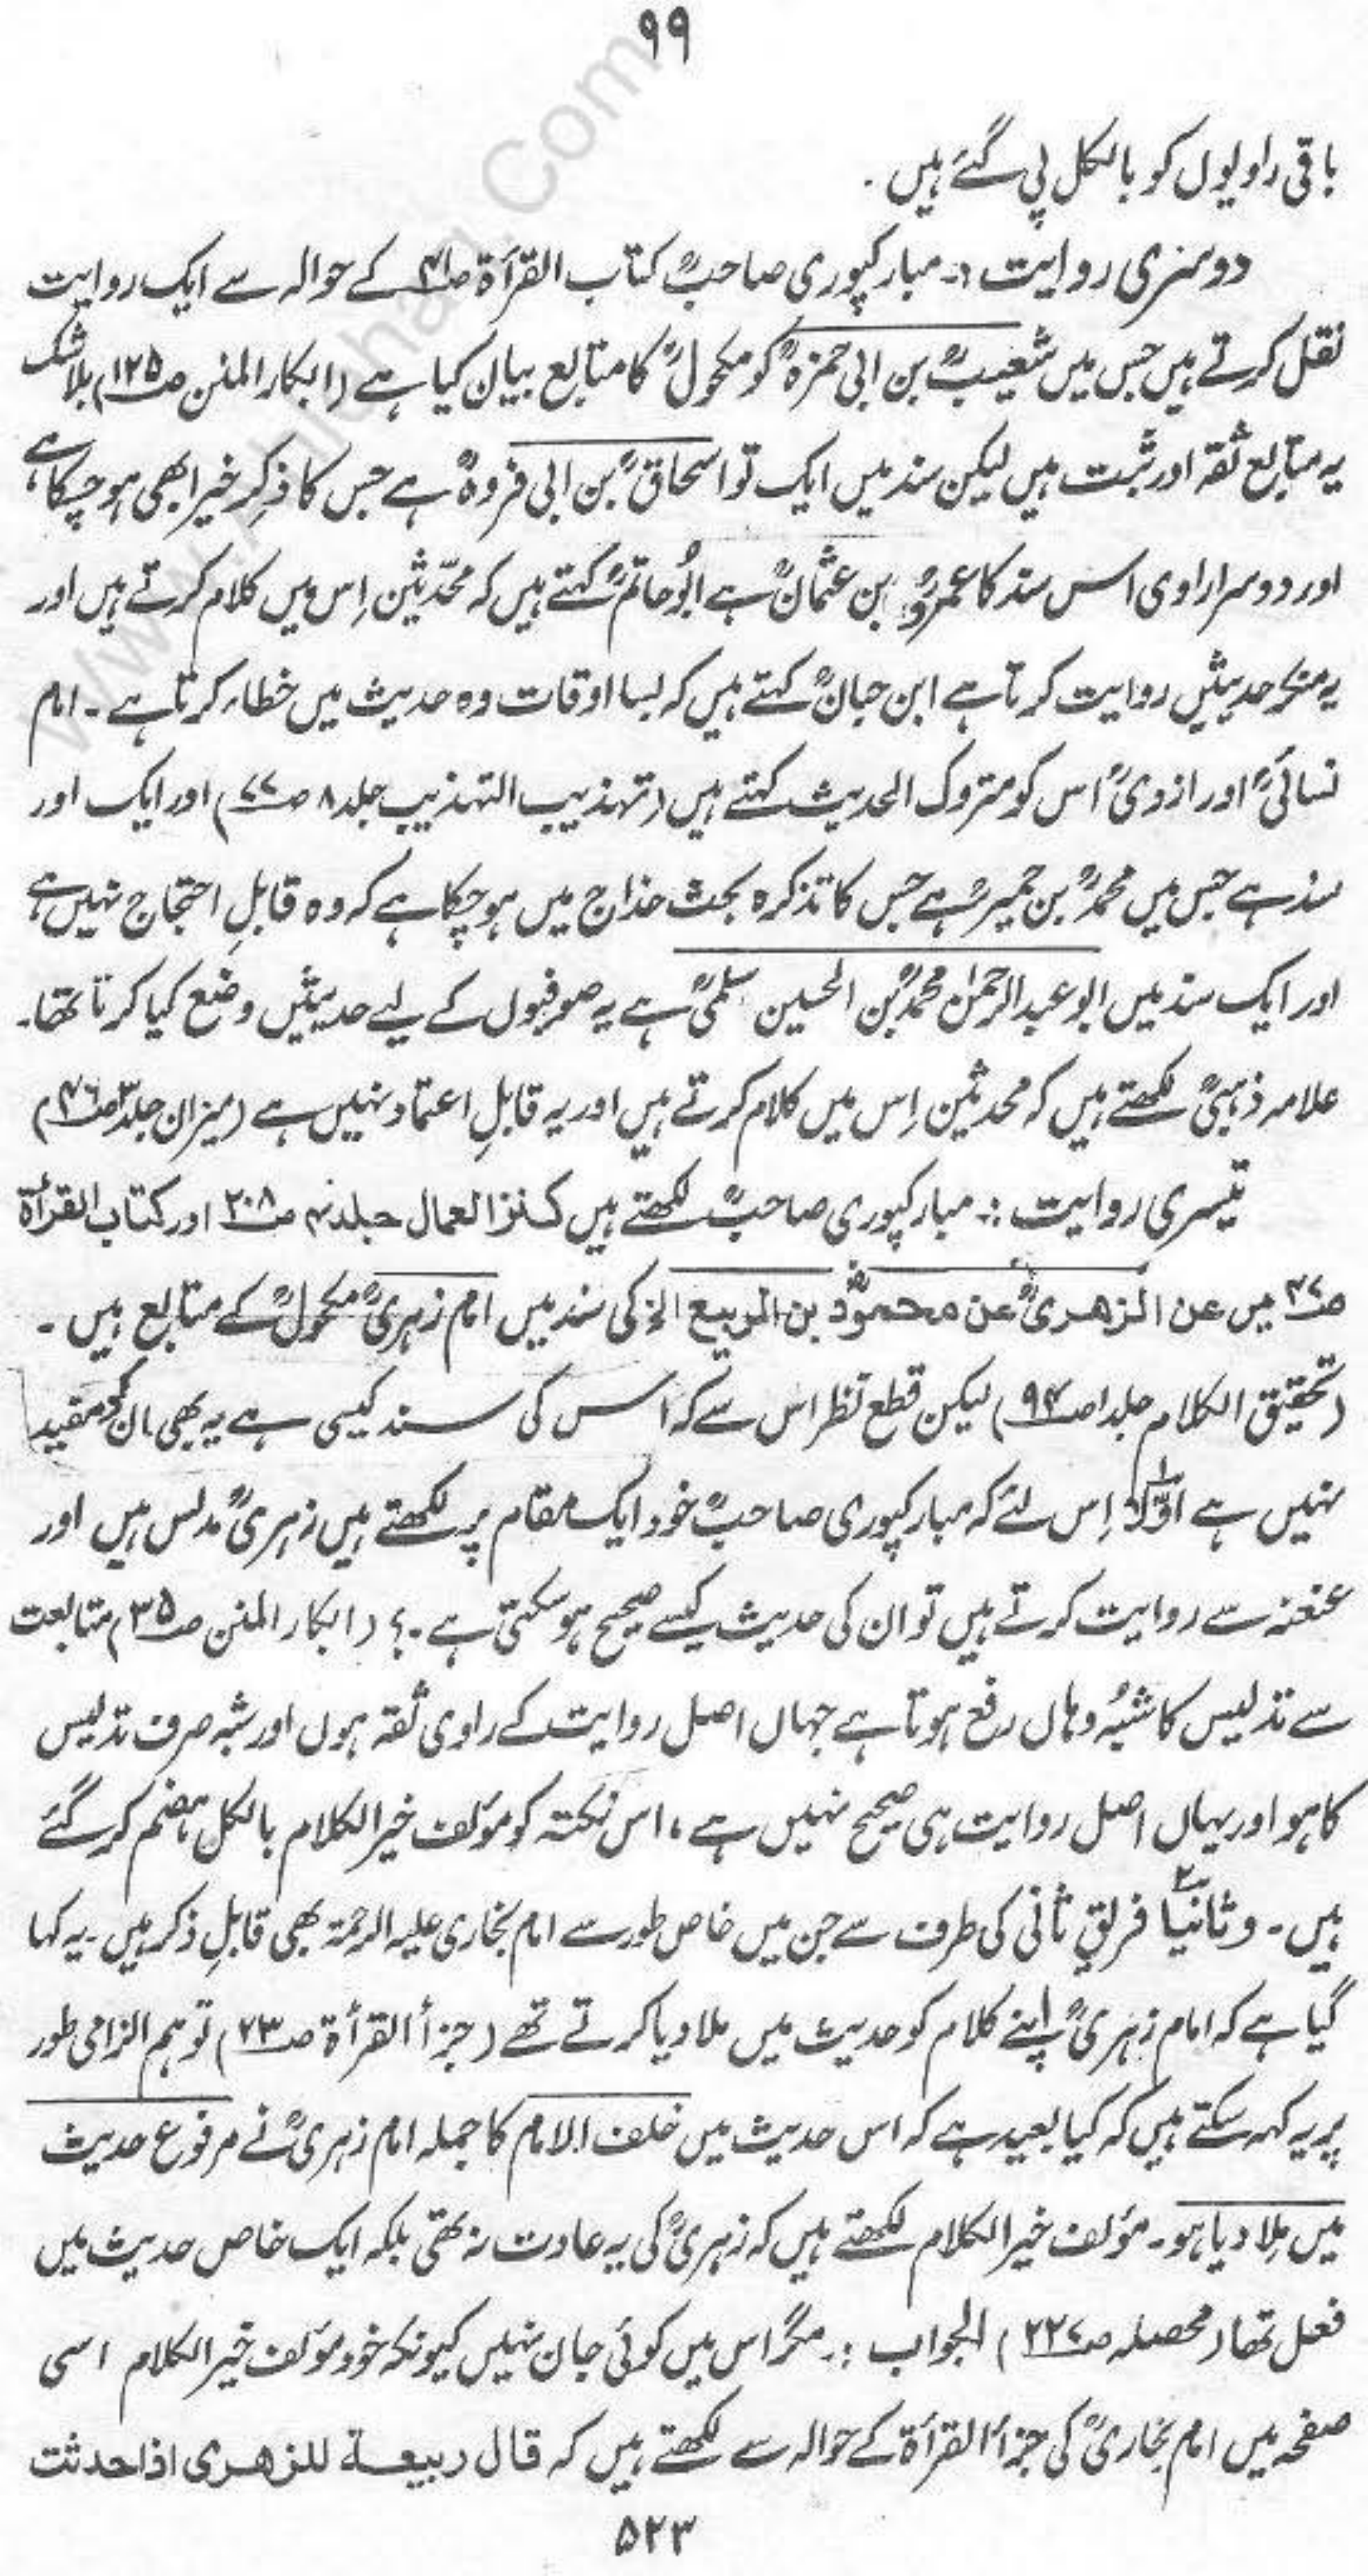 ۹۹
باقی راویوں کو بالکل پی گئے ہیں۔
دوسری روایت :۔ مبارکپوری صاحبؒ کتاب القرأۃ ص۴۱ کے حوالہ سے ایک روایت
نقل کرتے ہیں جس میں شعیبؒ بن ابی حمزہؒ کو مکحولؒ کا متابع بیان کیا ہے (ابکار المنن ص۱۲۵) بلاشک
یہ متابع ثقہ اور ثبت ہیں لیکن سند میں ایک تو اسحاقؒ بن ابی فروہؒ ہے جس کا ذکرِ خیر ابھی ہو چکا ہے
اور دوسرا راوی اس سند کا عمروؒ بن عثمانؒ ہے ابُوحاتمؒ کہتے ہیں کہ محدّثین اِس میں کلام کرتے ہیں اور
یہ منکر حدیثیں روایت کرتا ہے ابن حبانؒ کہتے ہیں کہ بسا اوقات وہ حدیث میں خطاء کرتا ہے۔ امام
نسائیؒ اور ازدیؒ اس کو متروک الحدیث کہتے ہیں (تہذیب التہذیب جلد ۸ ص۷۷) اور ایک اور
سند ہے جس میں محمدؒ بن حمیرؒ ہے جس کا تذکرہ بحث خداج میں ہو چکا ہے کہ وہ قابلِ احتجاج نہیں ہے
اور ایک سند میں ابو عبدالرحمٰن محمدؒ بن الحسین سلمیؒ ہے یہ صوفیوں کے لیے حدیثیں وضع کیا کرتا تھا۔
علامہ ذہبیؒ لکھتے ہیں کہ محدثین اِس میں کلام کرتے ہیں اور یہ قابلِ اعتماد نہیں ہے (میزان جلد۳ ص۴۶)
تیسری روایت :۔ مبارکپوری صاحبؒ لکھتے ہیں کنز العمال جلد۴ ص۲۰۸ اور کتاب القرأۃ
ص۴۷ میں عن الزھریؒ عن محمودؓ بن الربیع الخ کی سند میں امام زہریؒ مکحولؒ کے متابع ہیں۔
(تحقیق الکلام جلد ا ص۹۴) لیکن قطع نظر اس سے کہ اس کی سند کیسی ہے یہ بھی ان کو مفید
نہیں ہے اوّلاً اِس لئے کہ مبارکپوری صاحبؒ خود ایک مقام پر لکھتے ہیں زہریؒ مدلس ہیں اور
عنعنہ سے روایت کرتے ہیں تو ان کی حدیث کیسے صحیح ہو سکتی ہے۔؟ (ابکار المنن ص۳۵) متابعت
سے تدلیس کا شبُہ وہاں رفع ہوتا ہے جہاں اصل روایت کے راوی ثقہ ہوں اور شبہ صرف تدلیس
کا ہو اور یہاں اصل روایت ہی صحیح نہیں ہے، اس نکتہ کو مؤلف خیر الکلام بالکل ہضم کر گئے
ہیں۔ وثانیاً۲ فریقِ ثانی کی طرف سے جن میں خاص طور سے امام بخاری علیہ الرحمۃ بھی قابلِ ذکر ہیں۔ یہ کہا
گیا ہے کہ امام زہریؒ اپنے کلام کو حدیث میں ملا دیا کرتے تھے (جزأ القرأۃ ص۲۳) تو ہم الزامی طور
پر یہ کہہ سکتے ہیں کہ کیا بعید ہے کہ اس حدیث میں خلف الامام کا جملہ امام زہریؒ نے مرفوع حدیث
میں مِلا دیا ہو۔ مؤلف خیر الکلام لکھتے ہیں کہ زہریؒ کی یہ عادت نہ تھی بلکہ ایک خاص حدیث میں
فعل تھا (محصلہ ص۲۲۷) الجواب :۔ مگر اس میں کوئی جان نہیں کیونکہ خود مؤلف خیر الکلام اسی
صفحہ میں امام بخاریؒ کی جزأ القرأۃ کے حوالہ سے لکھتے ہیں کہ قال ربیعۃ للزھری اذا حدثت
۵۲۳